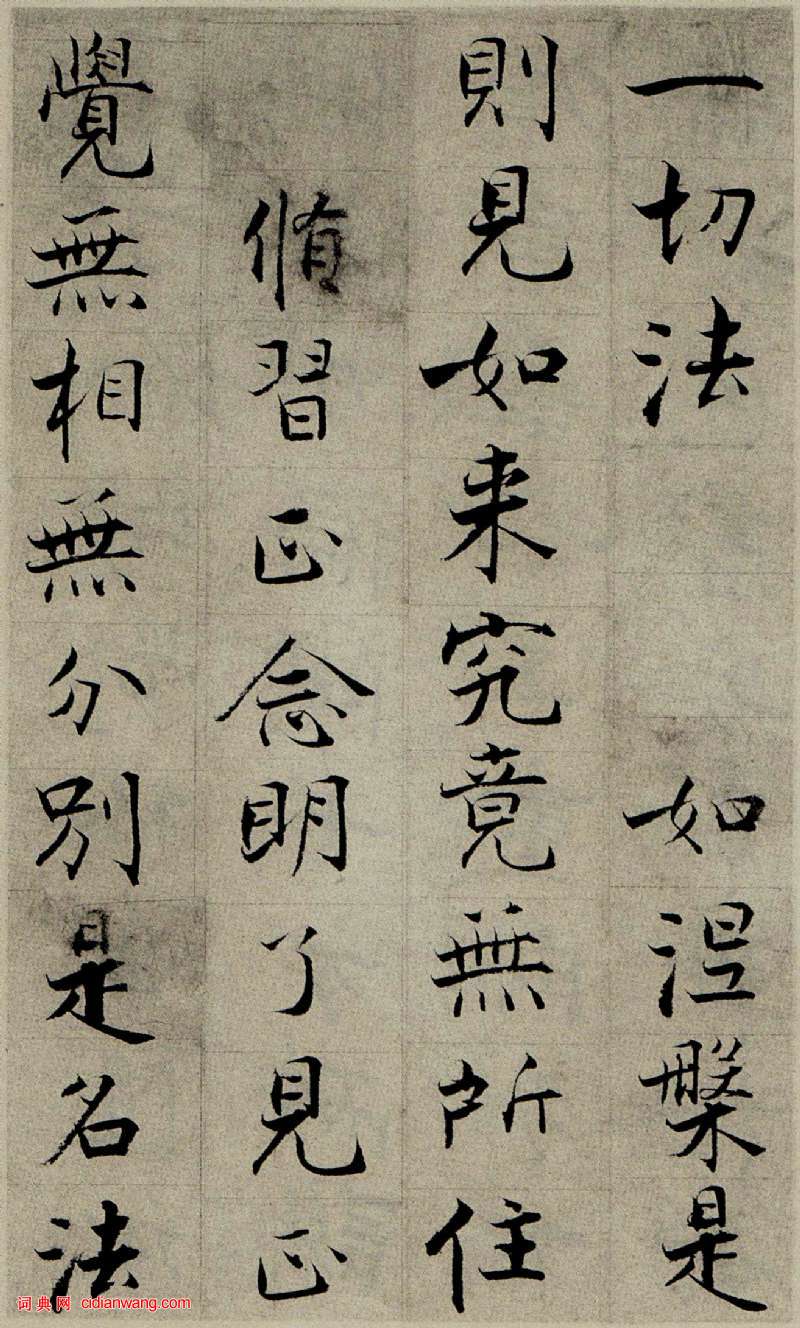 一切法 如涅槃是
則見如来究竟無所住
脩習正念明了見正
覺無相無分別是名法
词典网 cidianwang.com